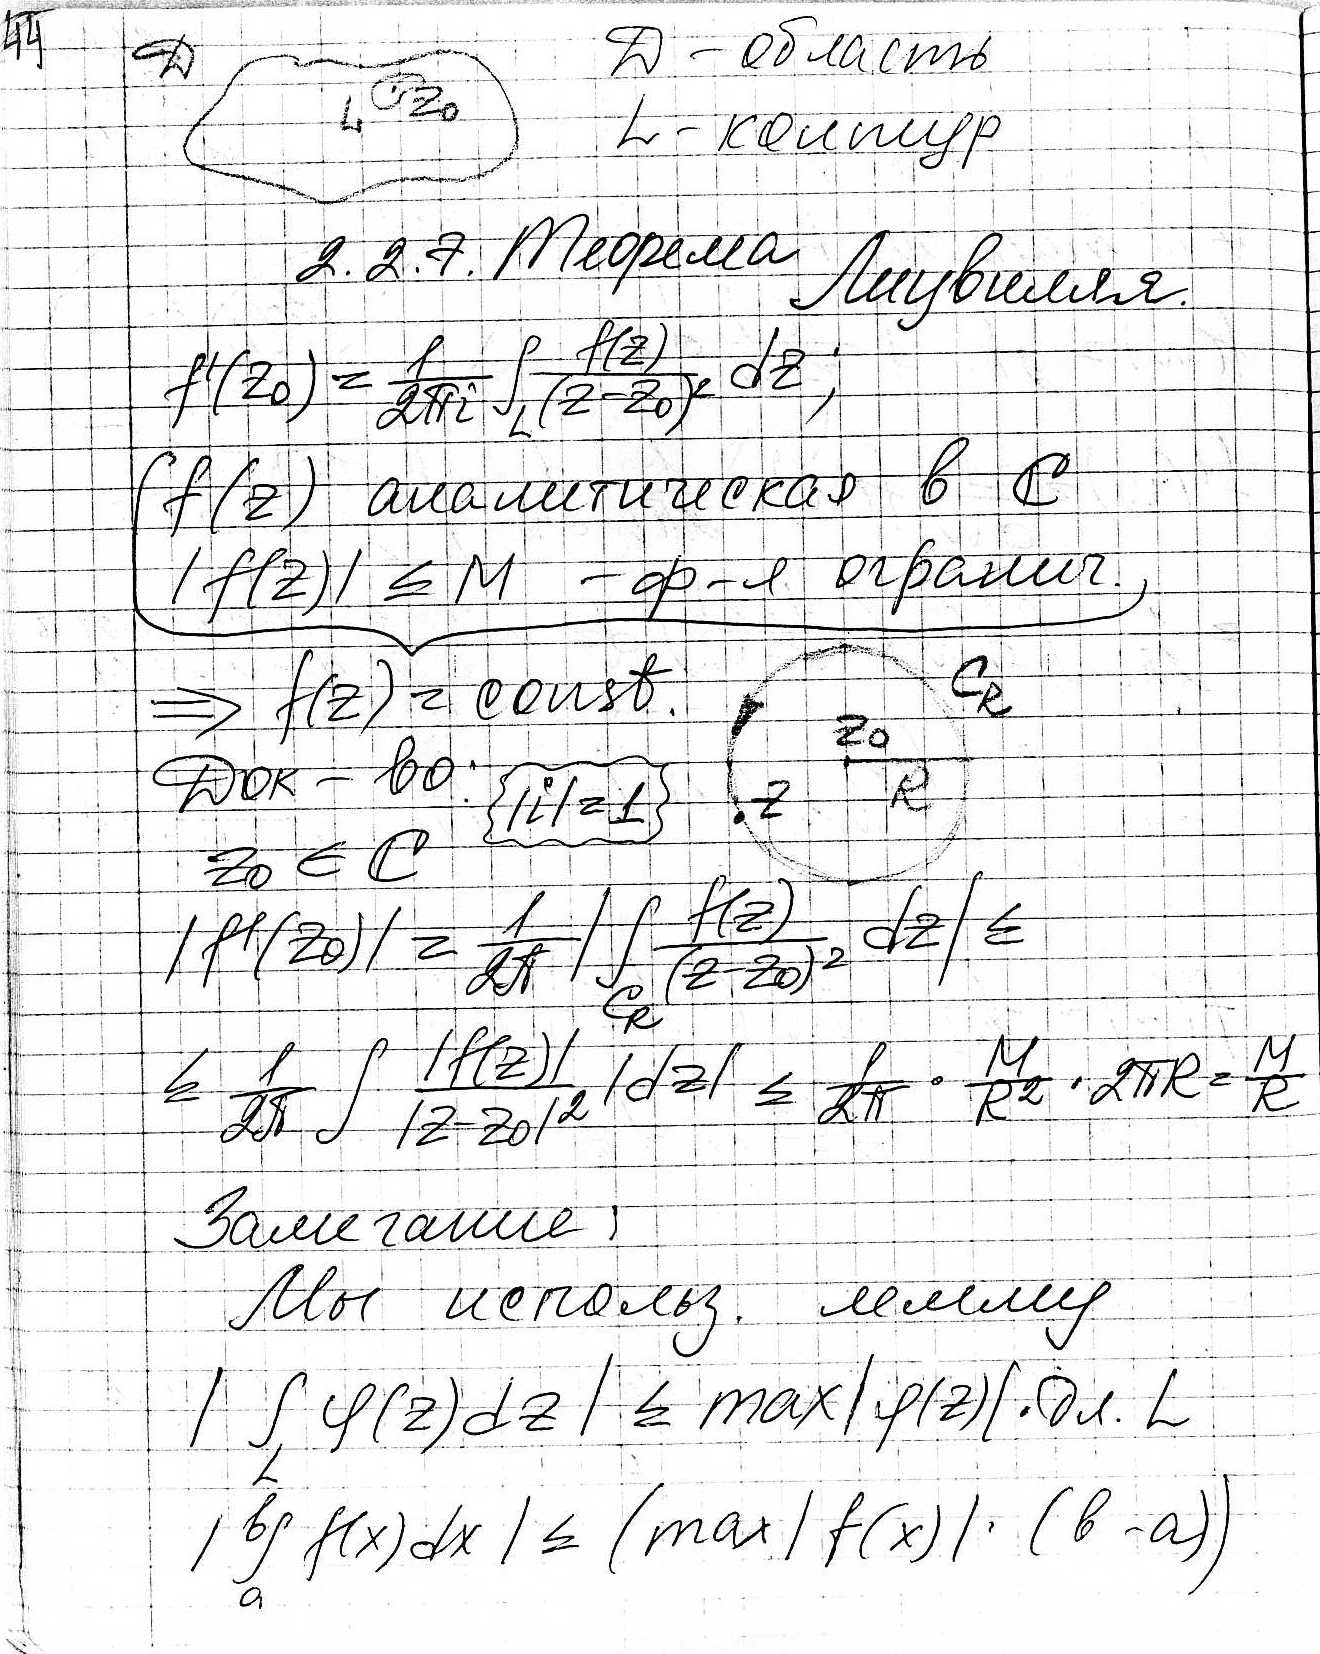 44
D
L z₀
D - область
L - контур
2.2.7. Теорема Лиувилля.
f'(z₀) = 1/(2πi) ∫_L f(z)/(z-z₀)² dz;
f(z) аналитическая в ℂ
|f(z)| ≤ M - ф-я огранич.,
⇒ f(z) = const.
C_R
z₀
R
.z
Док-во: {|i|=1}
z₀ ∈ ℂ
|f'(z₀)| = 1/(2π) |∫_{C_R} f(z)/(z-z₀)² dz| ≤
≤ 1/(2π) ∫ |f(z)|/|z-z₀|² |dz| ≤ 1/(2π) · M/R² · 2πR = M/R
Замечание:
Мы использ. лемму
|∫_L φ(z)dz| ≤ max|φ(z)|·дл. L
|∫_a^в f(x)dx| ≤ (max|f(x)|·(в-a))